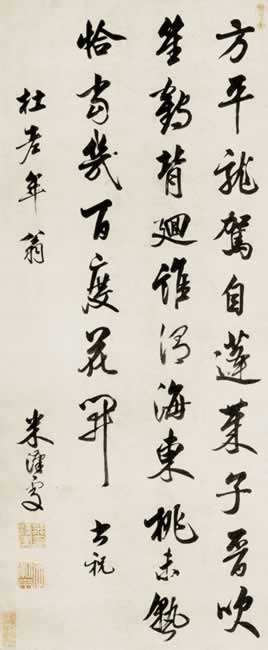 方平龍駕自蓬萊子晉吹
笙鶴背迴誰得海東桃未熟
恰當幾百度花開 書祝
杜老年翁
米漢雯